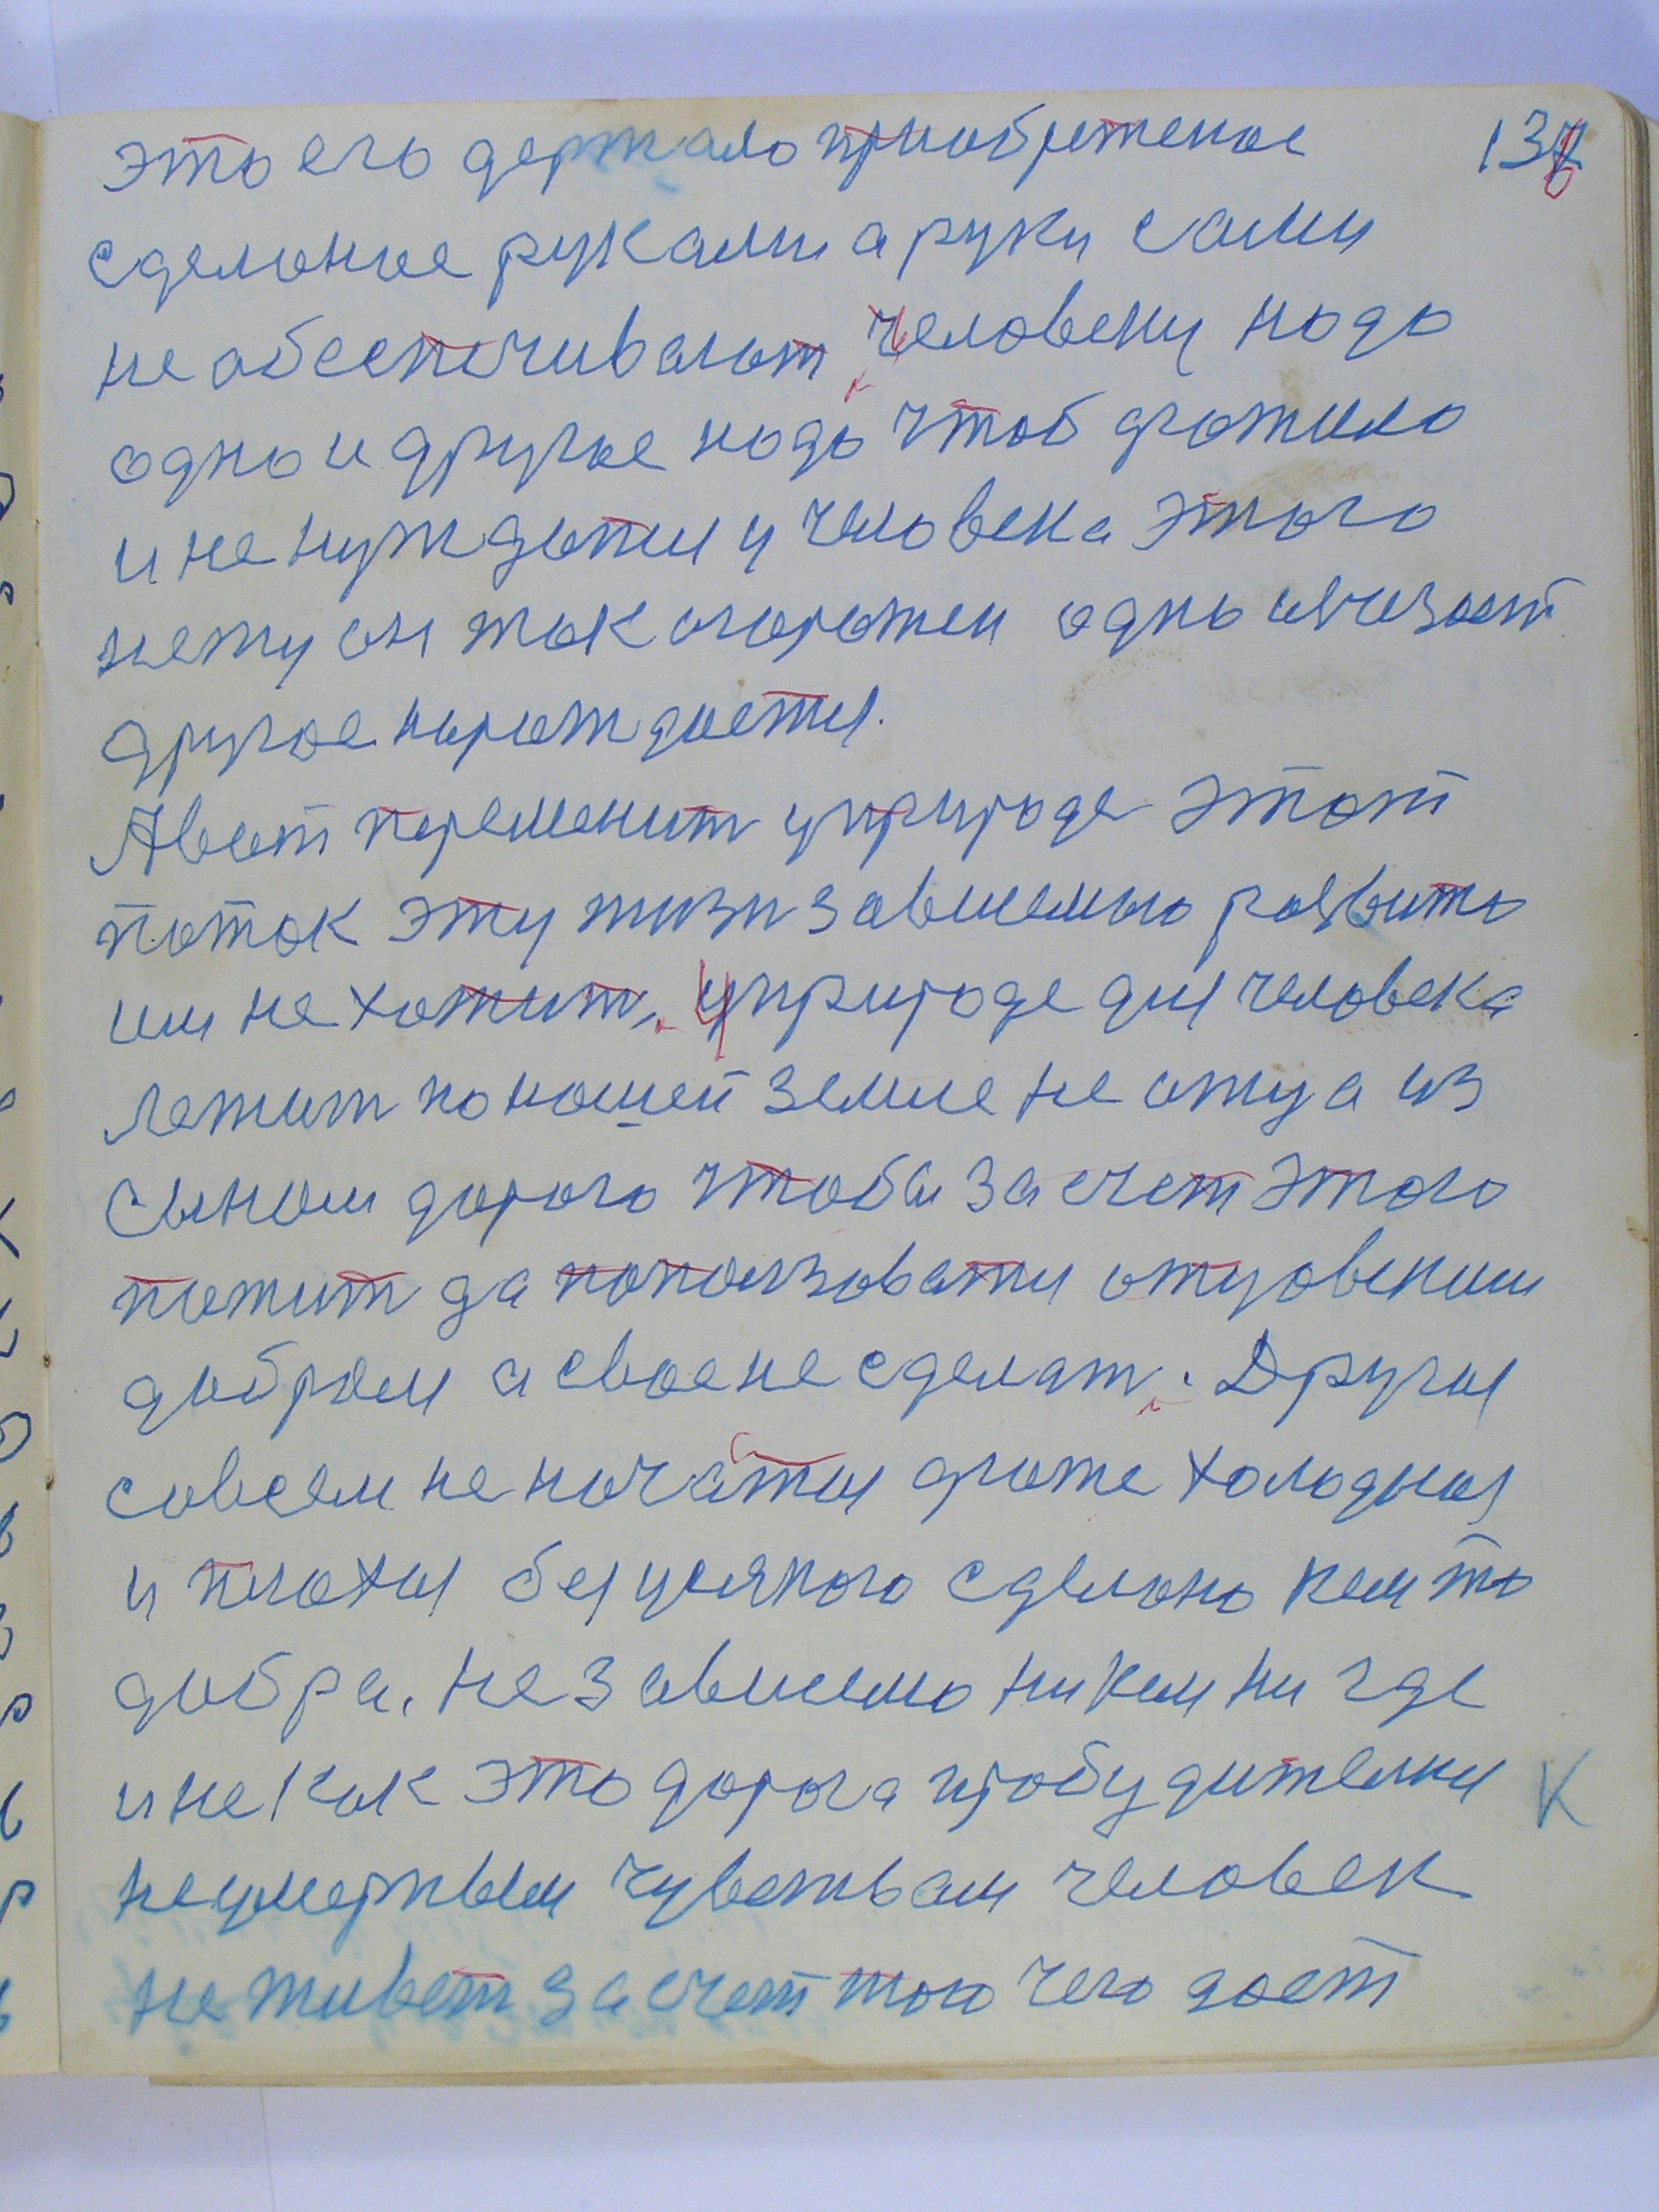 это его держало приобретеное 136
сделоное руками а руки сами
не обеспечивают, человеку надо
одно и другое надо чтоб дготжило
и не нуждатся у человека этого
нету он так огорожен одно исчезает
другое нарождается.
А вот переменит у природе этот
поток эту жизн зависемую развито
им не хотит, у природе для человека
лежит по нашей земле не отца из
сыном дорога чтобы за счет этого
пожит да попользоватся отцовским
добром а свое не сделат. Другая
совсем не начатая даже холодная
и плохая без усякого сделано кем то
добра. не зависемо ни кем ни где
и не как это дорога пробудителная
не умерным чувствам человек К
не живет за счет того чего дает